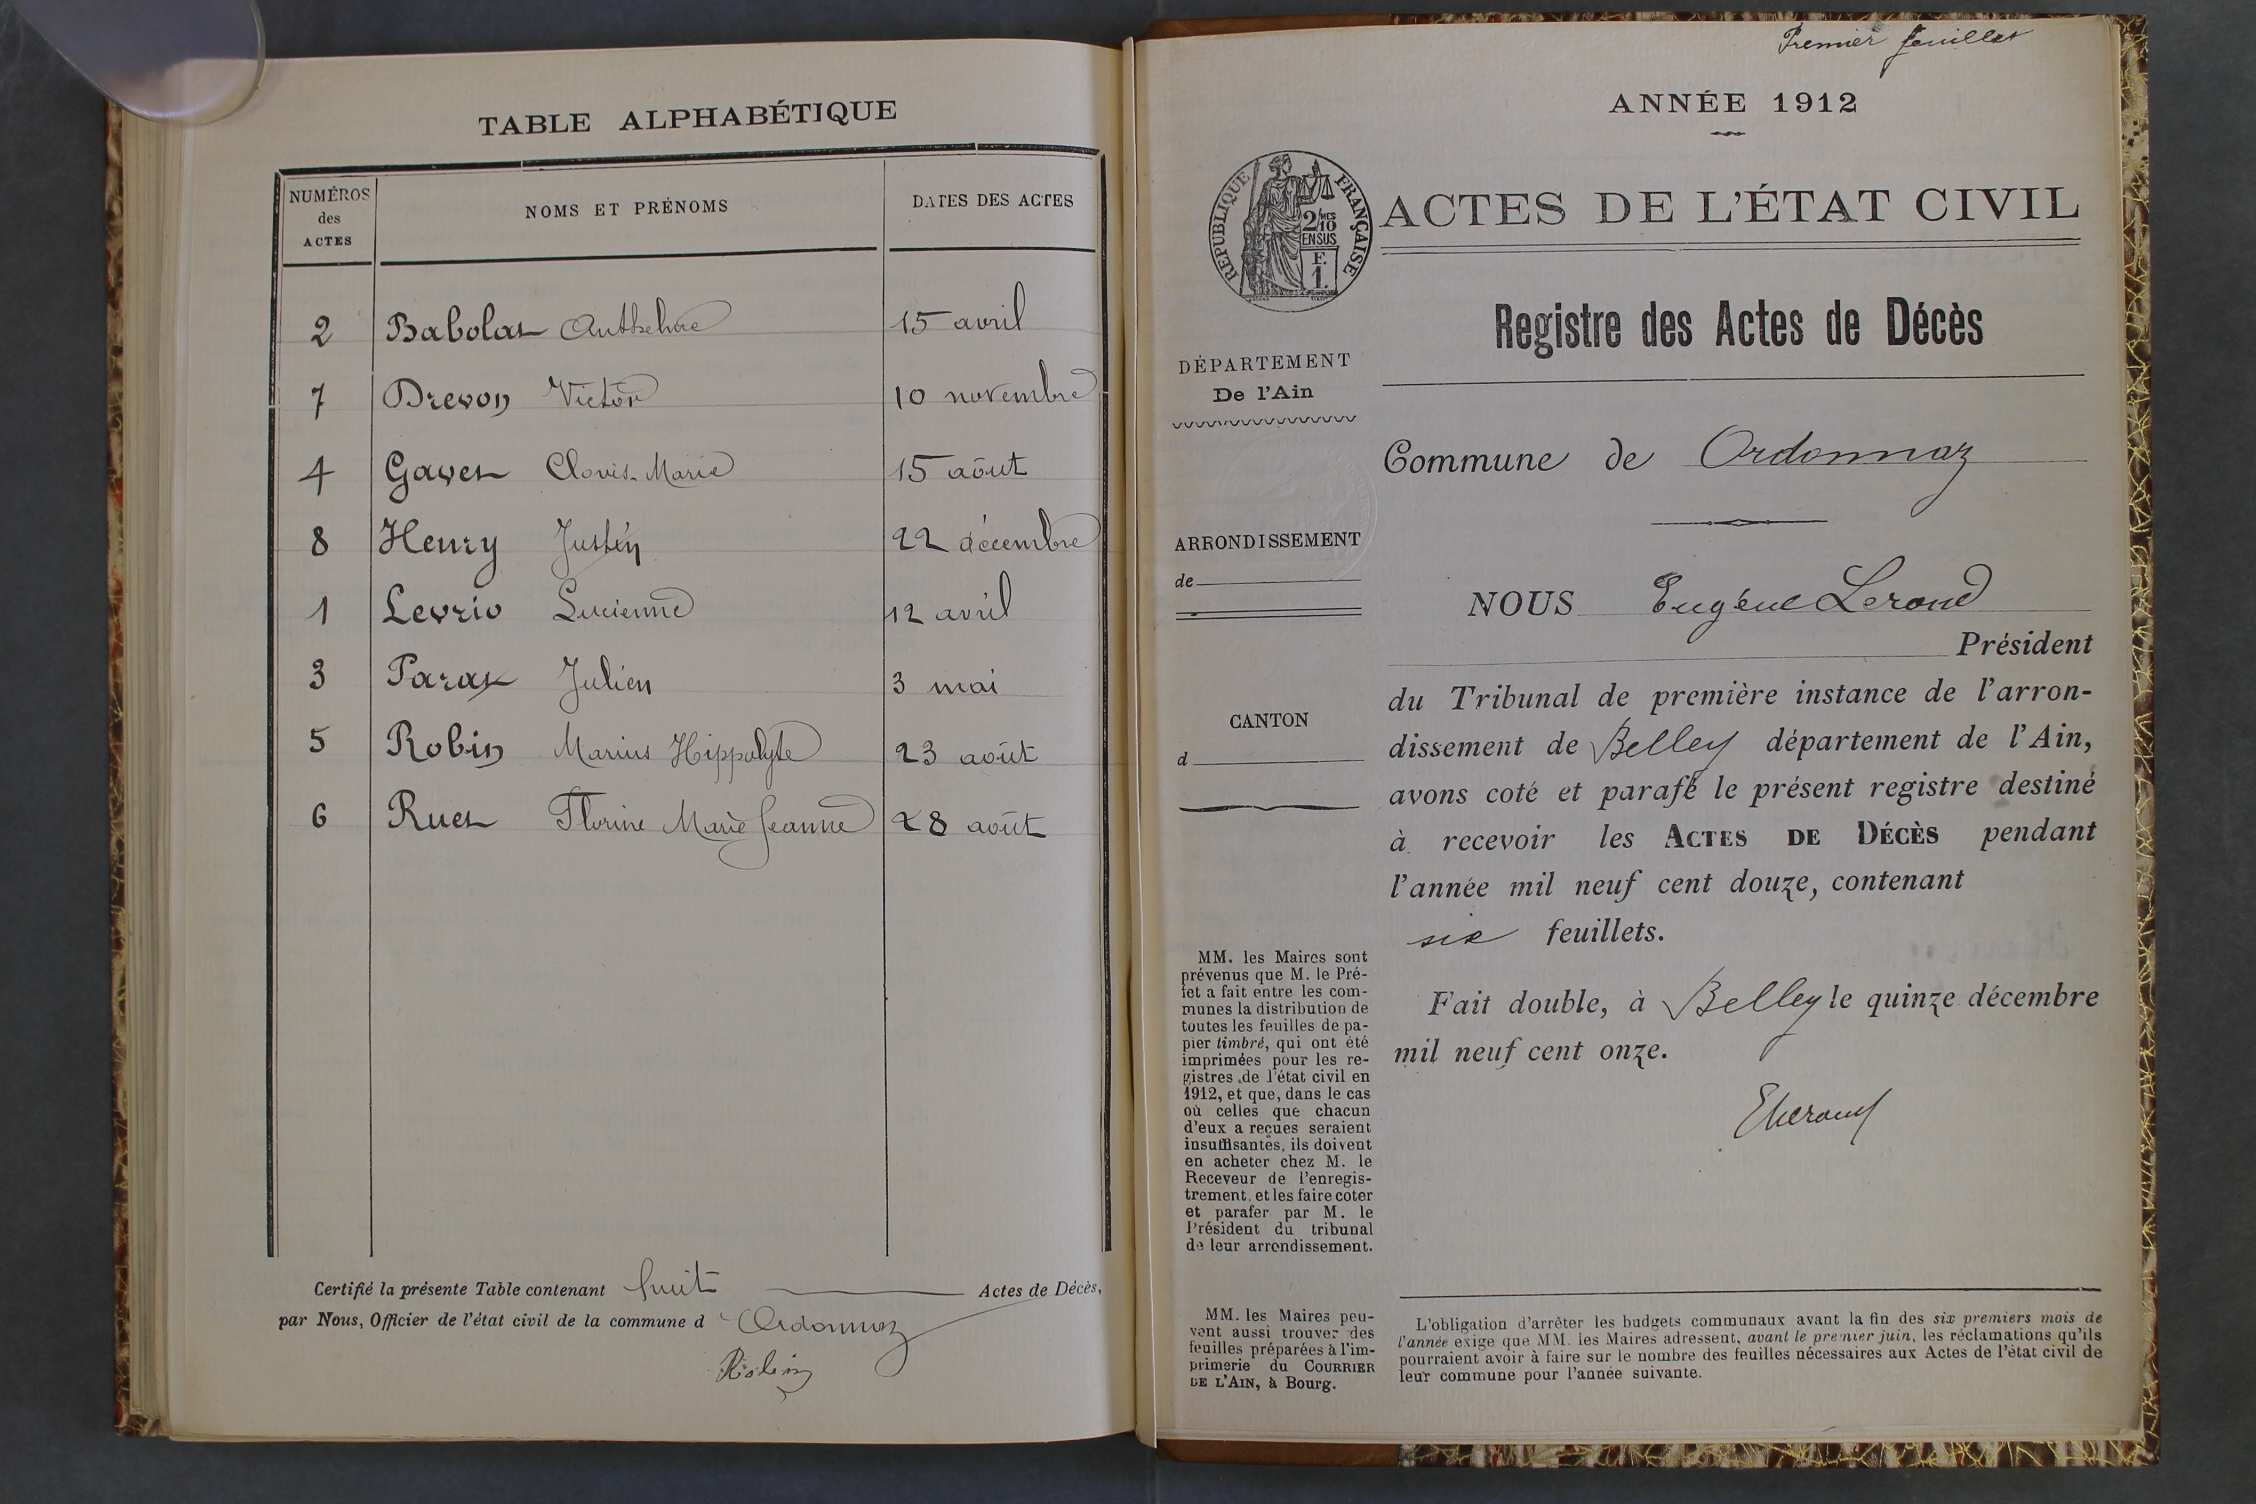 TABLE ALPHABÉTIQUE
NUMÉROS des ACTES
NOMS ET PRÉNOMS
DATES DES ACTES
2 Babolat Anthelme 15 avril
7 Drevon Victor 10 novembre
4 Gayet Clovis-Marie 15 août
8 Henry Justin 22 décembre
1 Levrio Lucienne 12 avril
3 Parat Julien 3 mai
5 Robin Marius Hippolyte 23 août
6 Ruet Florine Marie Jeanne 28 août
Certifié la présente Table contenant huit Actes de Décès,
par Nous, Officier de l'état civil de la commune d Ordonnaz
Robin
Premier feuillet
ANNÉE 1912
RÉPUBLIQUE FRANÇAISE
2/10MES
EN SUS
F.
1.
ACTES DE L'ÉTAT CIVIL
Registre des Actes de Décès
DÉPARTEMENT
De l'Ain
ARRONDISSEMENT
de
CANTON
d
MM. les Maires sont
prévenus que M. le Pré-
fet a fait entre les com-
munes la distribution de
toutes les feuilles de pa-
pier timbré, qui ont été
imprimées pour les re-
gistres de l'état civil en
1912, et que, dans le cas
où celles que chacun
d'eux a reçues seraient
insuffisantes, ils doivent
en acheter chez M. le
Receveur de l'enregis-
trement, et les faire coter
et parafer par M. le
Président du tribunal
de leur arrondissement.
MM. les Maires peu-
vent aussi trouver des
feuilles préparées à l'im-
primerie du COURRIER
DE L'AIN, à Bourg.
Commune de Ordonnaz
NOUS Eugène Lerond
Président
du Tribunal de première instance de l'arron-
dissement de Belley département de l'Ain,
avons coté et parafé le présent registre destiné
à recevoir les ACTES DE DÉCÈS pendant
l'année mil neuf cent douze, contenant
six feuillets.
Fait double, à Belley le quinze décembre
mil neuf cent onze.
L'obligation d'arrêter les budgets communaux avant la fin des six premiers mois de
l'année exige que MM. les Maires adressent, avant le premier juin, les réclamations qu'ils
pourraient avoir à faire sur le nombre des feuilles nécessaires aux Actes de l'état civil de
leur commune pour l'année suivante.